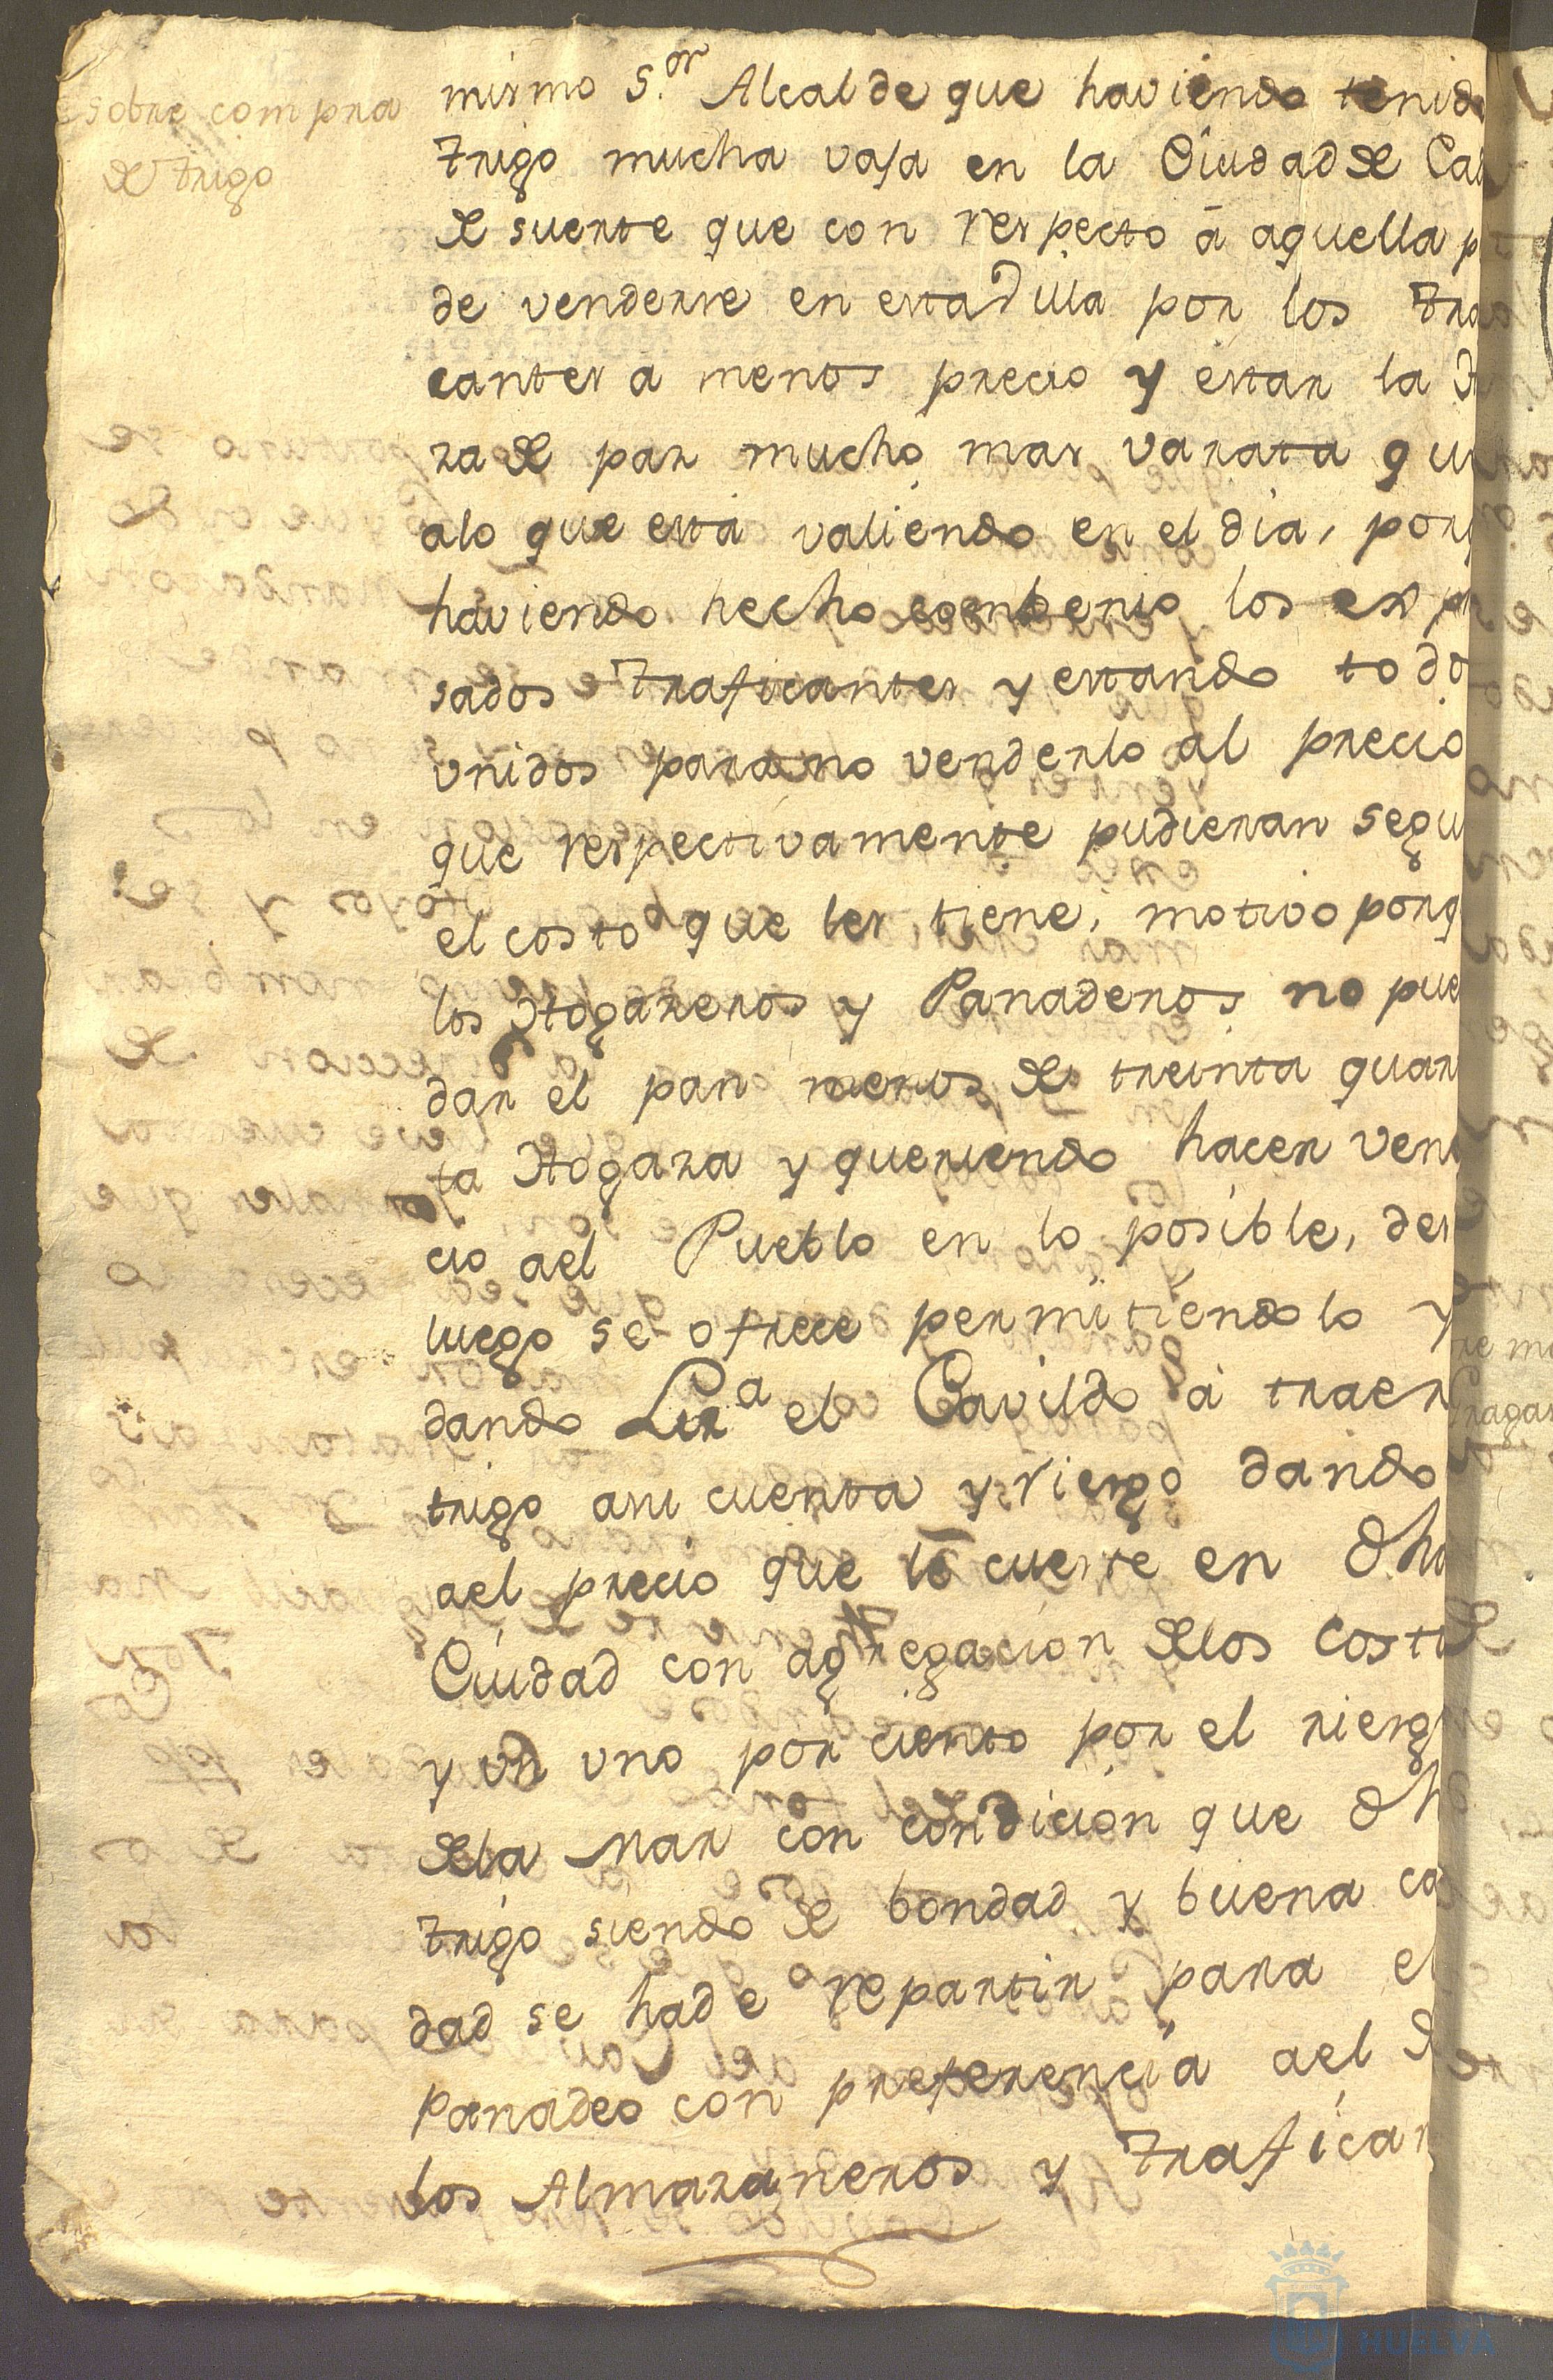 sobre compra
de trigo
mismo S.or Alcalde que haviendo tenido
trigo mucha vaja en la Ciudad de
de suerte que con respecto á aquella
de venderse en esta Villa por los
cantes a menos precio y estar la
ra de pan mucho mas varata
alo que está valiendo en el dia,
haviendo hecho combenio los
sados traficantes y estando todo
vnidos para no venderlo al precio
que respectivamente pudieran
el costo que les tiene, motivo
los Hogareros y Panaderos no
dar el pan menos de treinta
ta Hogaza y queriendo hacer
cio ael Pueblo en lo posible,
luego se ofrece permitiendolo y
dando Liz.a el Cavildo á traer
trigo asu cuenta y riesgo dando
ael precio que lo cueste en dha
Ciudad con agregacion de los
y un uno por ciento por el
dela Mar con condicion que
trigo siendo de bondad y buena
dad se hade repartir para el
panadeo con preferencia ael
los Almazaneros y
HUELVA